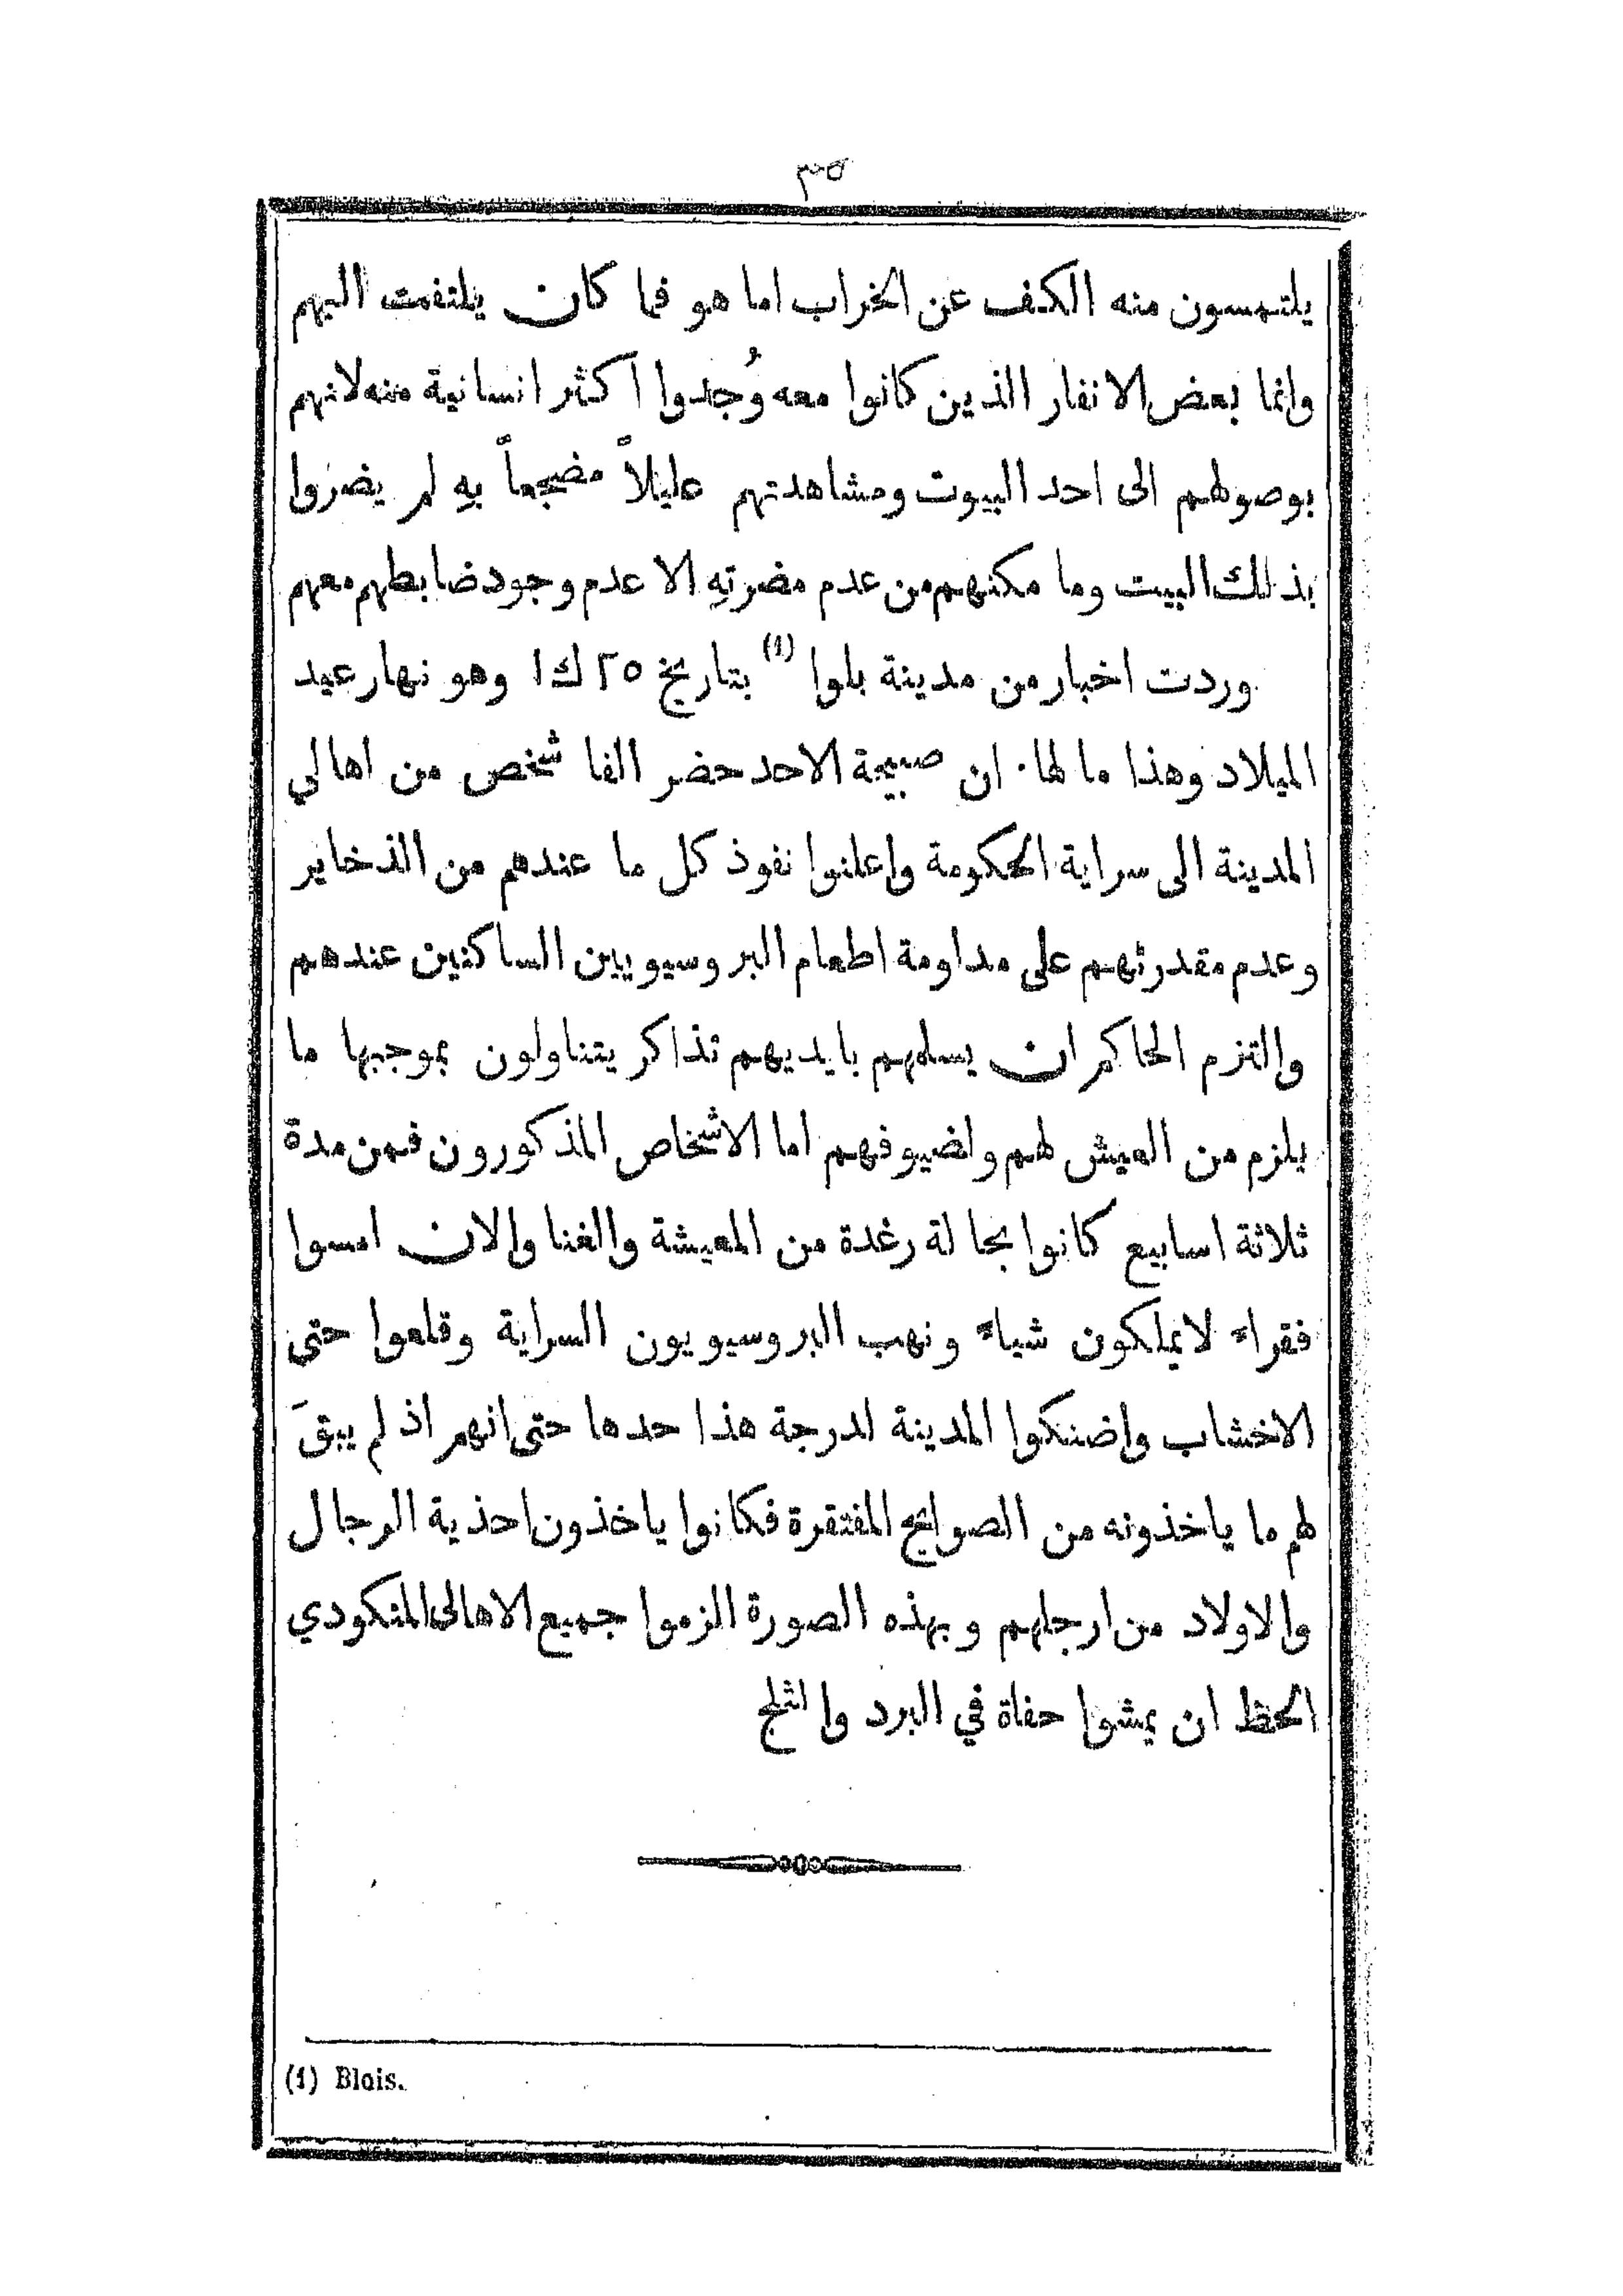 ٣٥
يلتمسون منه الكف عن الخراب اما هو فما كان يلتفت اليهم
وانما بعض الانفار الذين كانوا معه وُجدوا اكثر انسانية منه لانهم
بوصولهم الى احد البيوت ومشاهدتهم عليلاً مضجعاً بهِ لم يضروا
بذلك البيت وما مكنهم من عدم مضرتهِ الا عدم وجود ضابطهم معهم
وردت اخبار من مدينة بلوا (1) بتاريخ ٢٥ ك١ وهو نهار عيد
الميلاد وهذا ما لها. ان صبيحة الاحد حضر الفا شخص من اهالي
المدينة الى سراية الحكومة واعلنوا نفوذ كل ما عندهم من الذخاير
وعدم مقدرتهم على مداومة اطعام البروسيويين الساكنين عندهم
والتزم الحاكم ان يسلمهم بايديهم تذاكر يتناولون بموجبها ما
يلزم من العيش لهم ولضيوفهم اما الاشخاص المذكورون فمن مدة
ثلاثة اسابيع كانوا بحالة رغدة من المعيشة والغنا والان امسوا
فقراء لا يملكون شياء ونهب البروسيويون السراية وقلعوا حتى
الاخشاب واضنكوا المدينة لدرجة هذا حدها حتى انهم اذ لم يبقَ
لهم ما ياخذونه من الصوايح المفتقرة فكانوا ياخذون احذية الرجال
والاولاد من ارجلهم وبهذه الصورة الزموا جميع الاهالى المنكودي
الحظ ان يمشوا حفاة في البرد والثلج
(1) Blois.